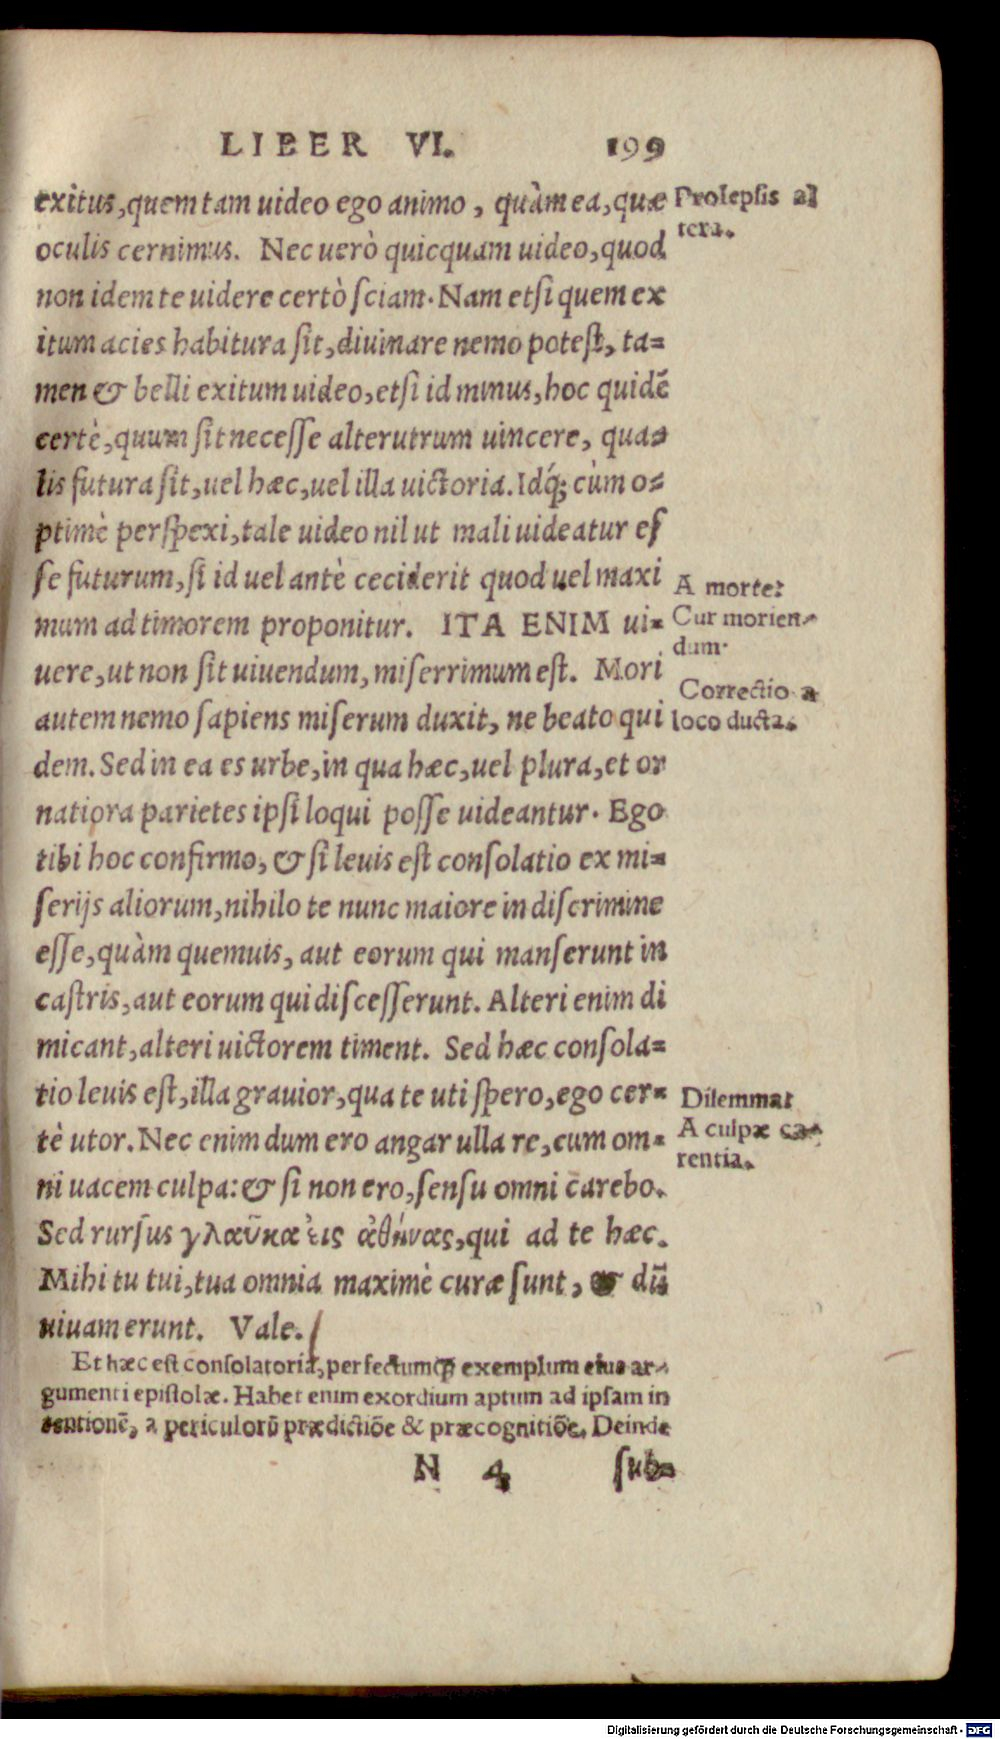 LIBER VI. 199
exitus, quem tam uideo ego animo, quàm ea, quæ
oculis cernimus. Nec uerò quicquam uideo, quod
non idem te uidere certò sciam. Nam etsi quem ex
itum acies habitura sit, diuinare nemo potest, ta=
men & belli exitum uideo, etsi id minus, hoc quidē
certè, quum sit necesse alterutrum uincere, qua=
lis futura sit, uel hæc, uel illa uictoria. Idq́; cùm o=
ptimè perspexi, tale uideo nil ut mali uideatur es
se futurum, si id uel antè ceciderit quod uel maxi
mum ad timorem proponitur. ITA ENIM ui=
uere, ut non sit uiuendum, miserrimum est. Mori
autem nemo sapiens miserum duxit, ne beato qui
dem. Sed in ea es urbe, in qua hæc, uel plura, et or
natiora parietes ipsi loqui posse uideantur. Ego
tibi hoc confirmo, & si leuis est consolatio ex mi=
serijs aliorum, nihilo te nunc maiore in discrimine
esse, quàm quemuis, aut eorum qui manserunt in
castris, aut eorum qui discesserunt. Alteri enim di
micant, alteri uictorem timent. Sed hæc consola=
tio leuis est, illa grauior, qua te uti spero, ego cer=
tè utor. Nec enim dum ero angar ulla re, cum om=
ni uacem culpa: & si non ero, sensu omni carebo.
Sed rursus γλαῦκα ἐις ἀθήνας, qui ad te hæc.
Mihi tu tui, tua omnia maximè curæ sunt, & dū
uiuam erunt. Vale.
Et hæc est consolatoria, perfectumq́; exemplum eius ar-
gumenti epistolæ. Habet enim exordium aptum ad ipsam in
tentionē, a periculorū prædictiōe & præcognitiōe. Deinde
N 4 sub=
Prolepsis al
tera.
A morte:
Cur morien-
dum.
Correctio a
loco ducta.
Dilemma:
A culpæ ca-
rentia.
Digitalisierung gefördert durch die Deutsche Forschungsgemeinschaft - DFG